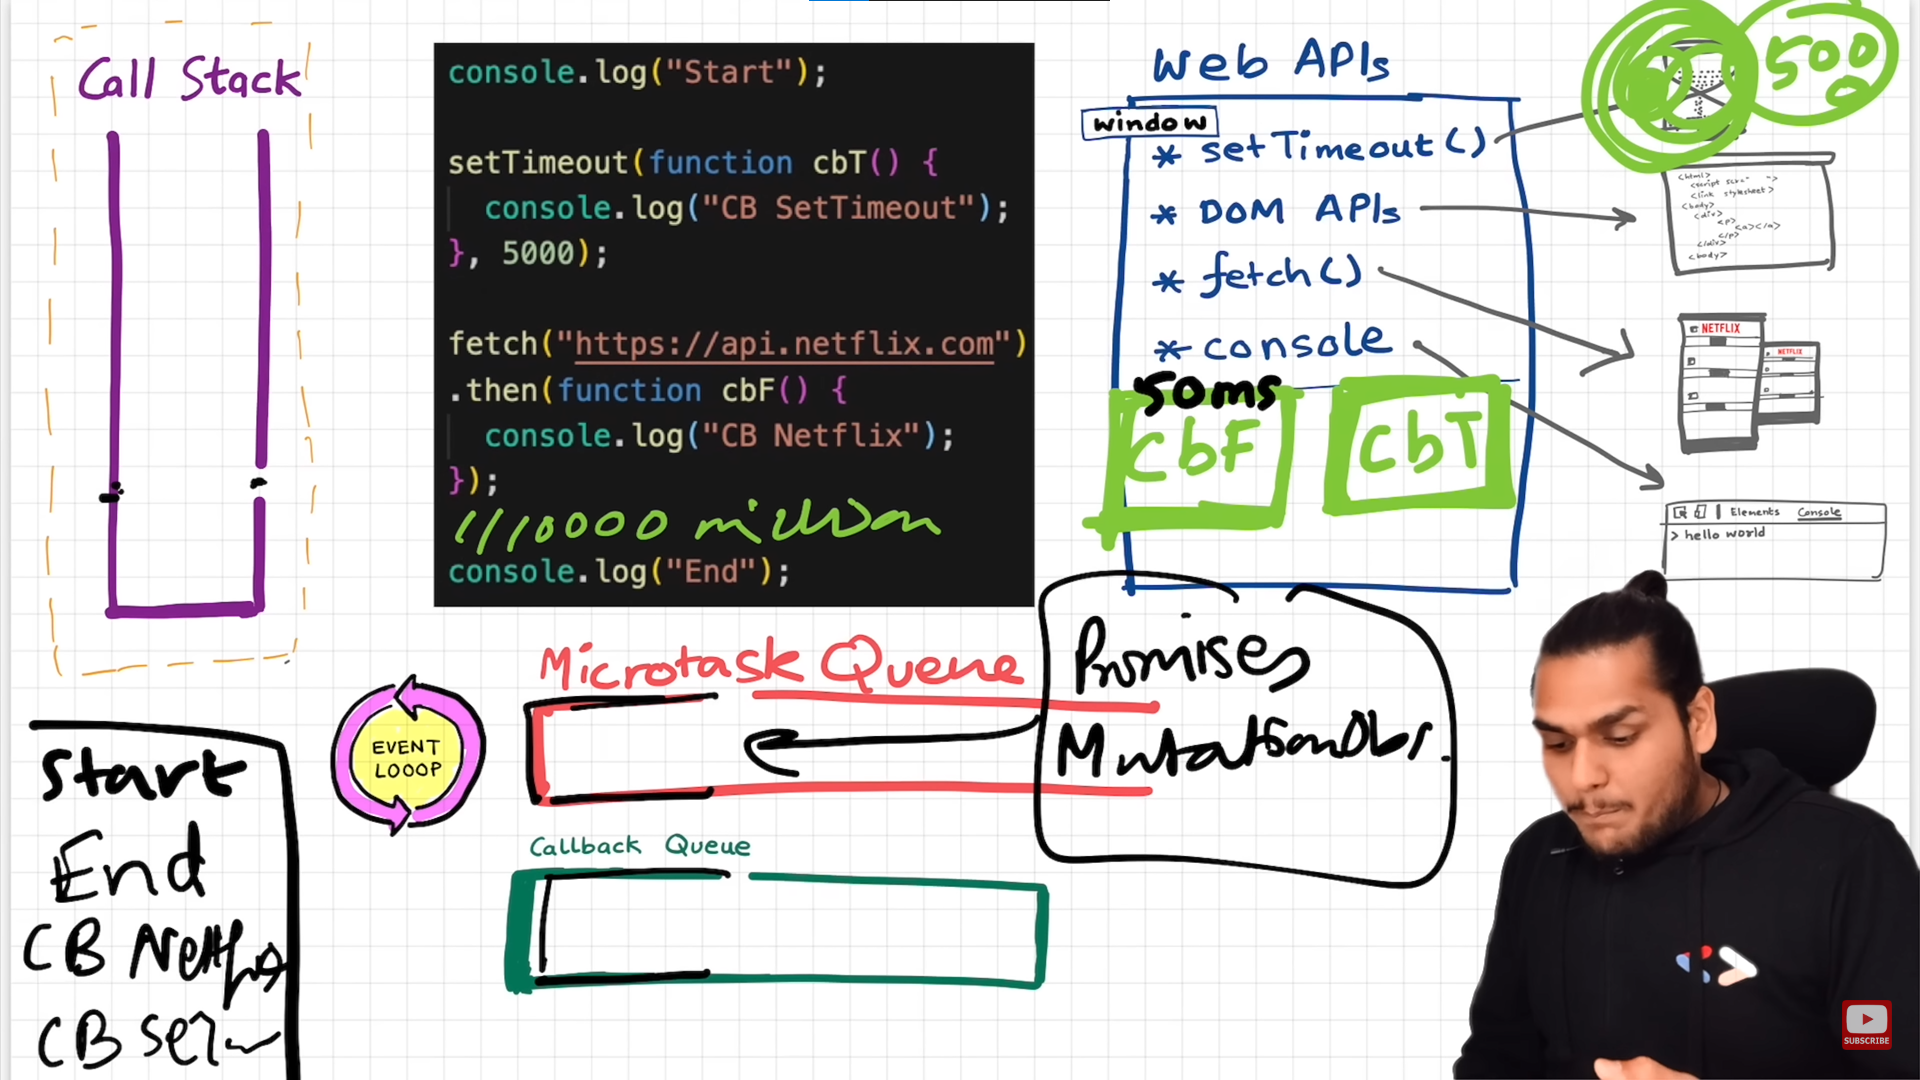 Call Stack
console.log("Start");
setTimeout(function cbT() {
console.log("CB SetTimeout");
}, 5000);
fetch("https://api.netflix.com")
.then(function cbF() {
console.log("CB Netflix");
});
1/10000 million
console.log("End");
Web APIs
window
* setTimeout()
* DOM APIs
* fetch()
* console
50ms
CbF
CbT
5000
<html>
<link stylesheet>
<body>
<div>
<p>
<a></a>
</p>
</div>
<body>
NETFLIX
NETFLIX
Elements Console
> hello world
Microtask Queue
Promises
MutationObs.
EVENT
LOOOP
Callback Queue
Start
End
CB Netflix
CB Set
SUBSCRIBE